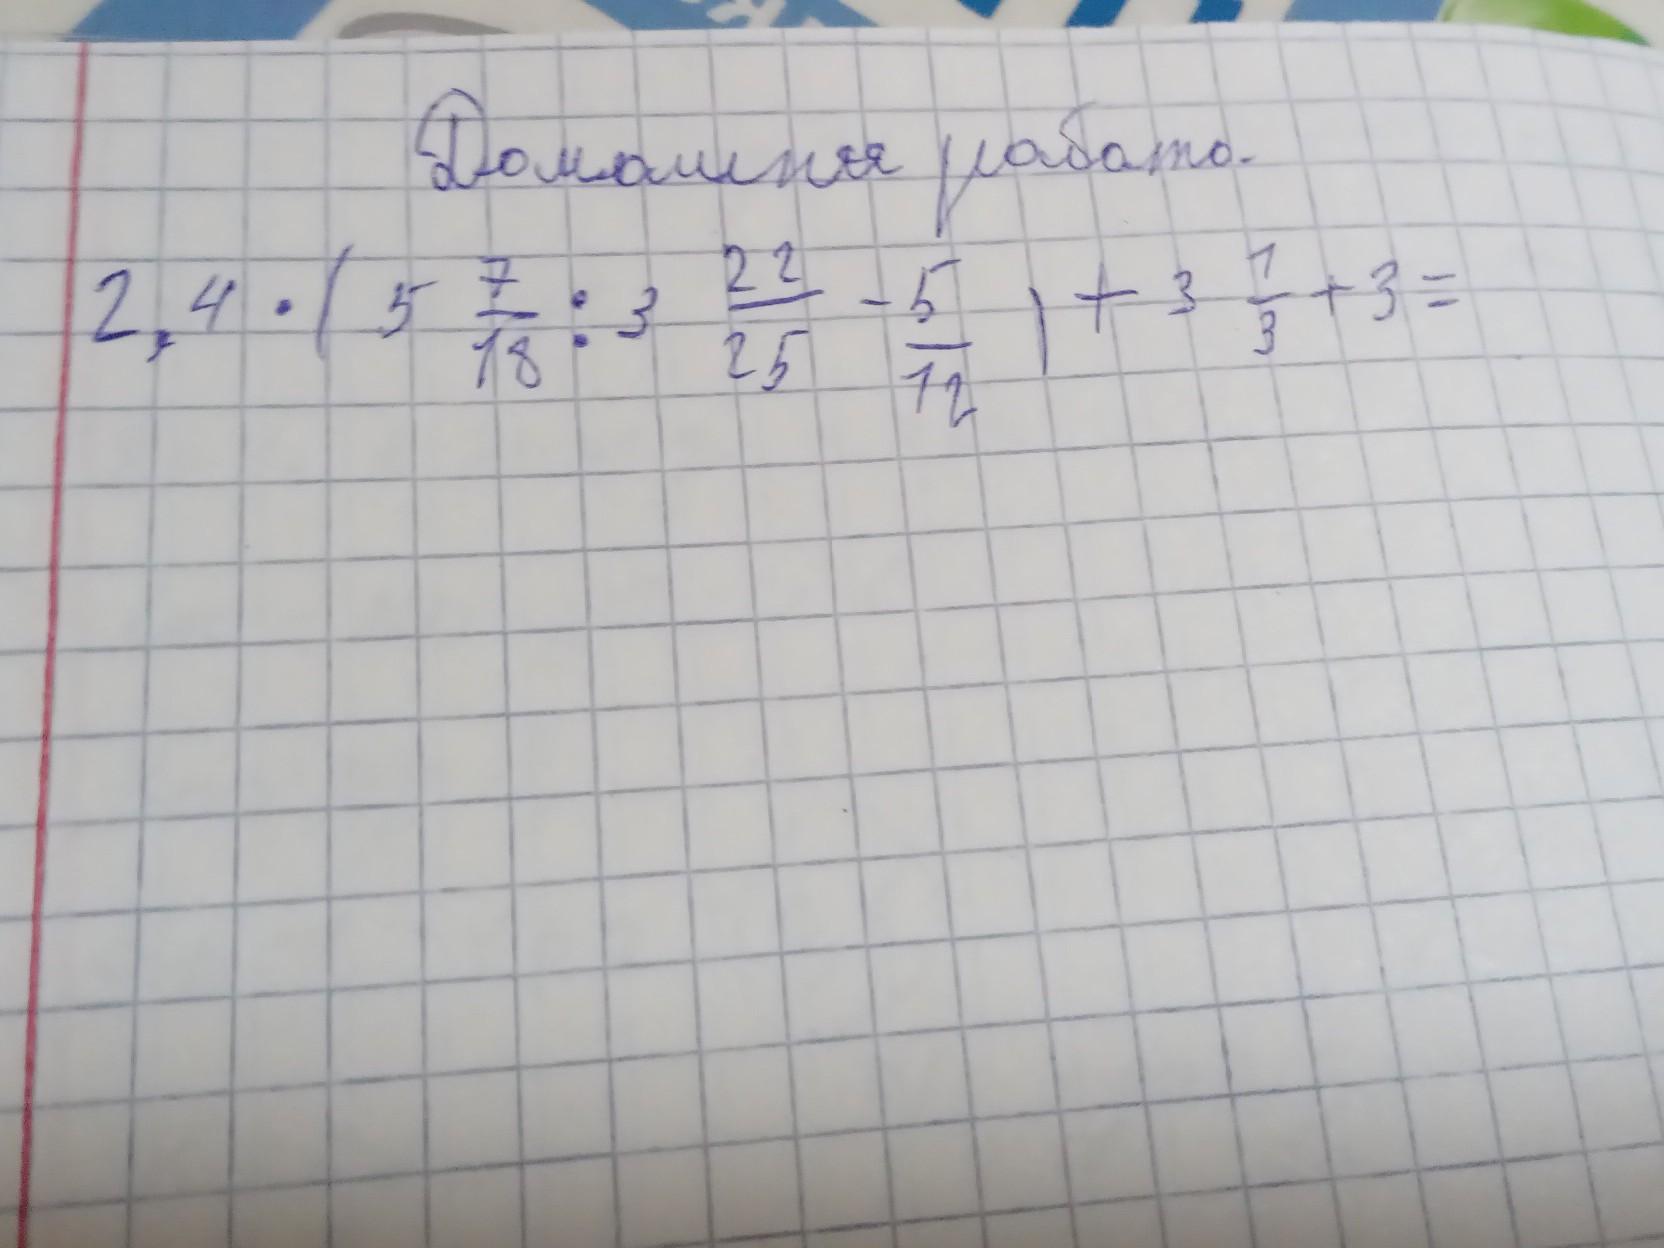 Домашняя работа.
2,4 · ( 5 7/18 : 3 22/25 - 5/12 ) + 3 1/3 + 3 =